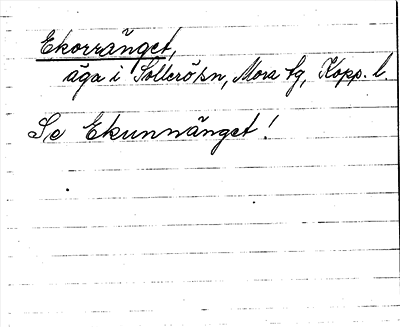 Ekorränget,
äga i Sollerösn, Mora tg, Kopp. l.
Se Ekunnänget!